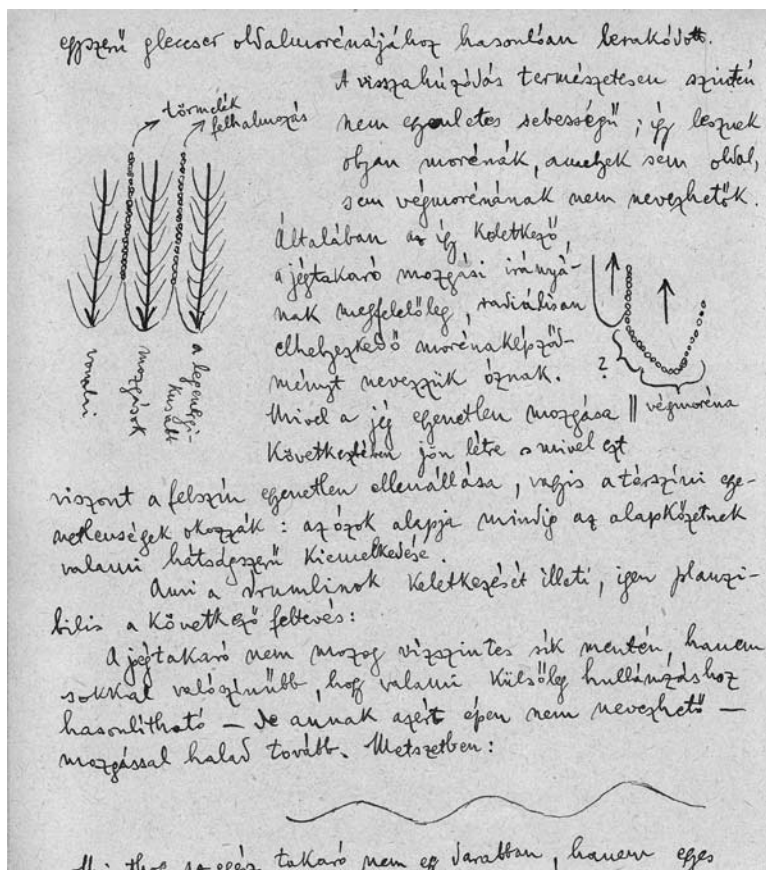 egyszerű gleccser oldalmorénájához hasonlóan lerakódott.
A visszahúzódás természetesen szintén
nem egyenletes sebességű; így lesznek
olyan morénák, amelyek sem oldal,
sem végmorénának nem nevezhetők.
törmelék
felhalmozás
Általában az így keletkező,
a jégtakaró mozgási irányá-
nak megfelelőleg, radiálisan
elhelyezkedő morénaképződ-
ményt nevezzük óznak.
Mivel a jég egyenetlen mozgása ||
következtében jön létre s mivel ezt
vonalai
mozgások
a legenergi-
kusabb
?
végmoréna
viszont a felszín egyenetlen ellenállása, vagyis a térszíni egye-
netlenségek okozzák: az ózok alapja mindig az alapkőzetnek
valami hátságszerű kiemelkedése.
Ami a drumlinok keletkezését illeti, igen plauzi-
bilis a következő feltevés:
A jégtakaró nem mozog vízszintes sík mentén, hanem
sokkal valószínűbb, hogy valami külsőleg hullámzáshoz
hasonlítható – de annak azért épen nem nevezhető –
mozgással halad tovább. Metszetben:
az egész takaró nem egy darabban, hanem egyes